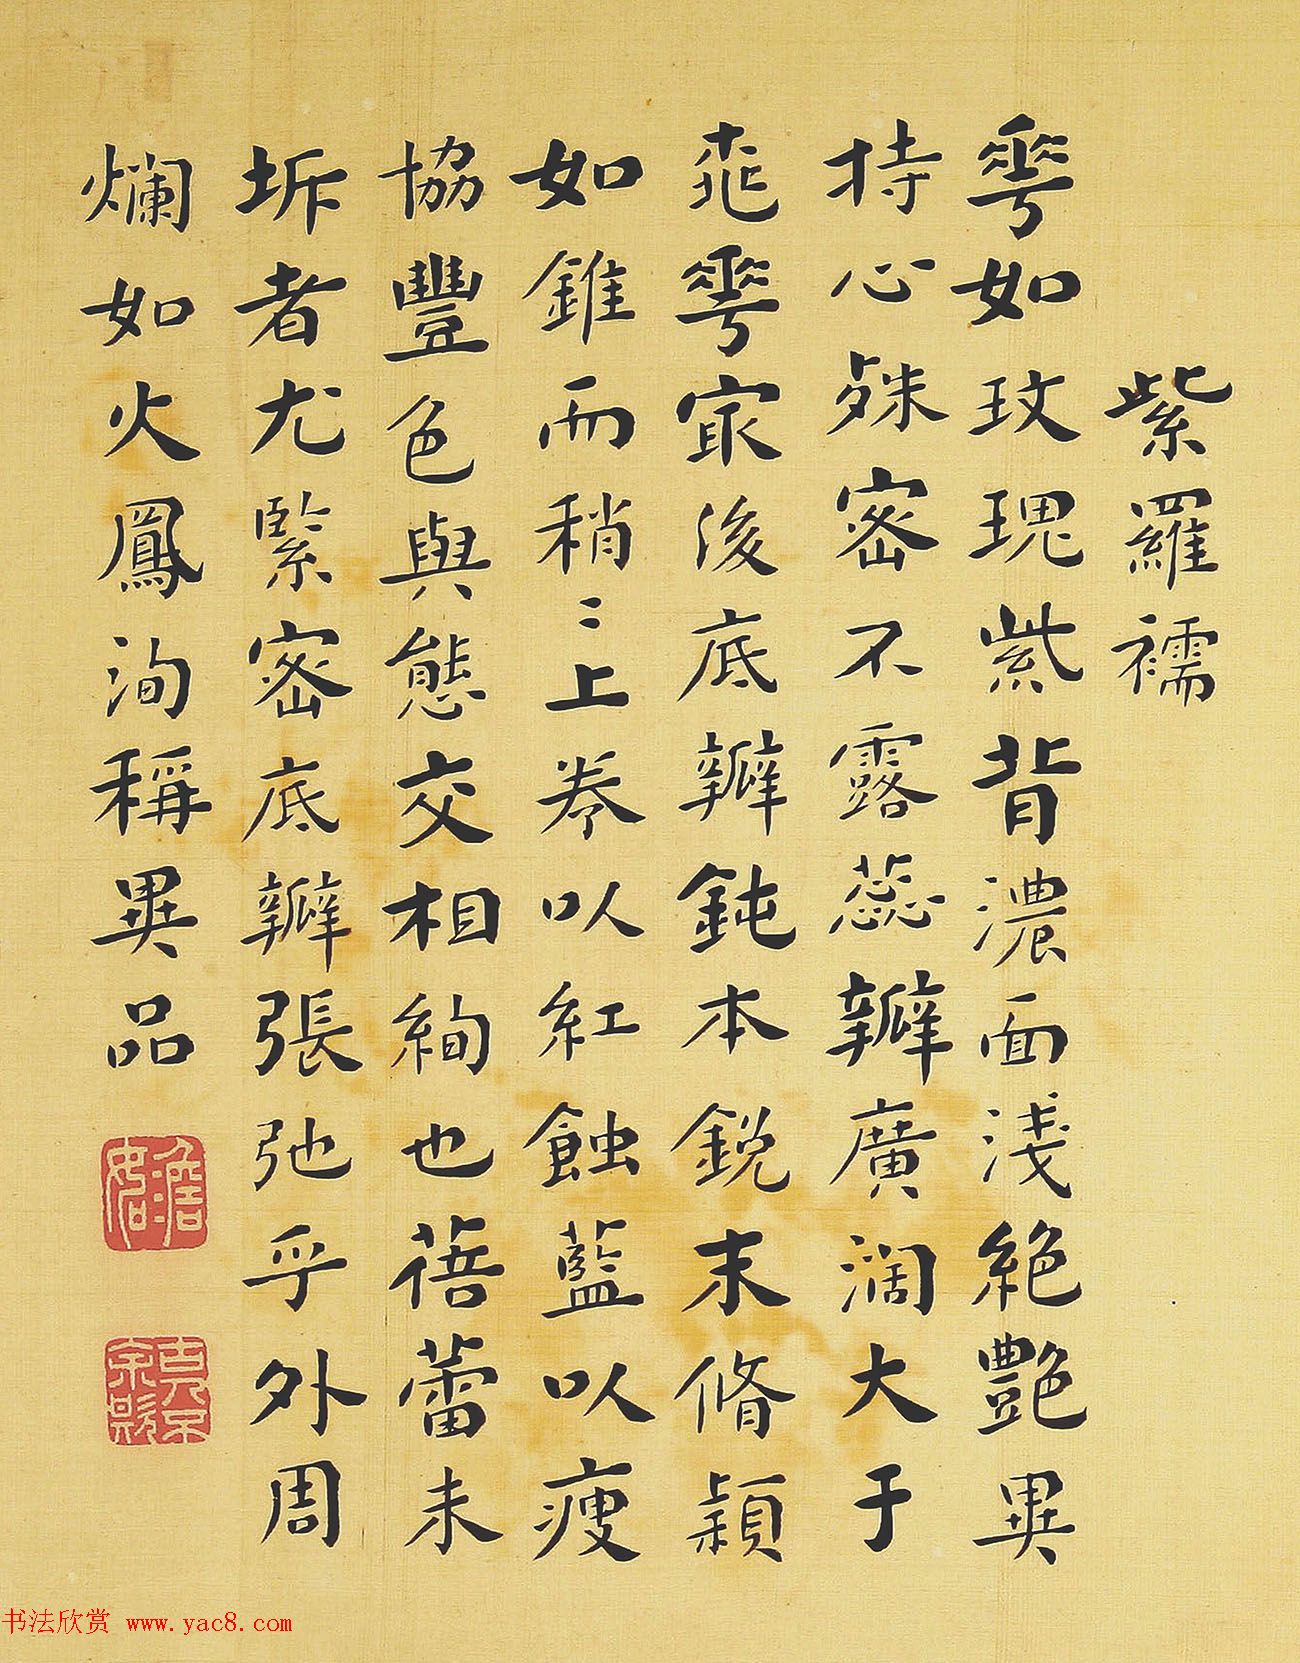 紫羅襦
蕐如玫瑰紫背濃面淺絕艷異
持心殊密不露蕊瓣廣濶大于
蕐冣後底瓣鈍本銳末脩穎
如錐而稍〻上卷以紅蝕藍以瘦
協豐色與態交相絢也蓓蕾未
坼者尤緊密底瓣張弛乎外周
爛如火鳳洵稱異品
書法欣赏 www.yac8.com